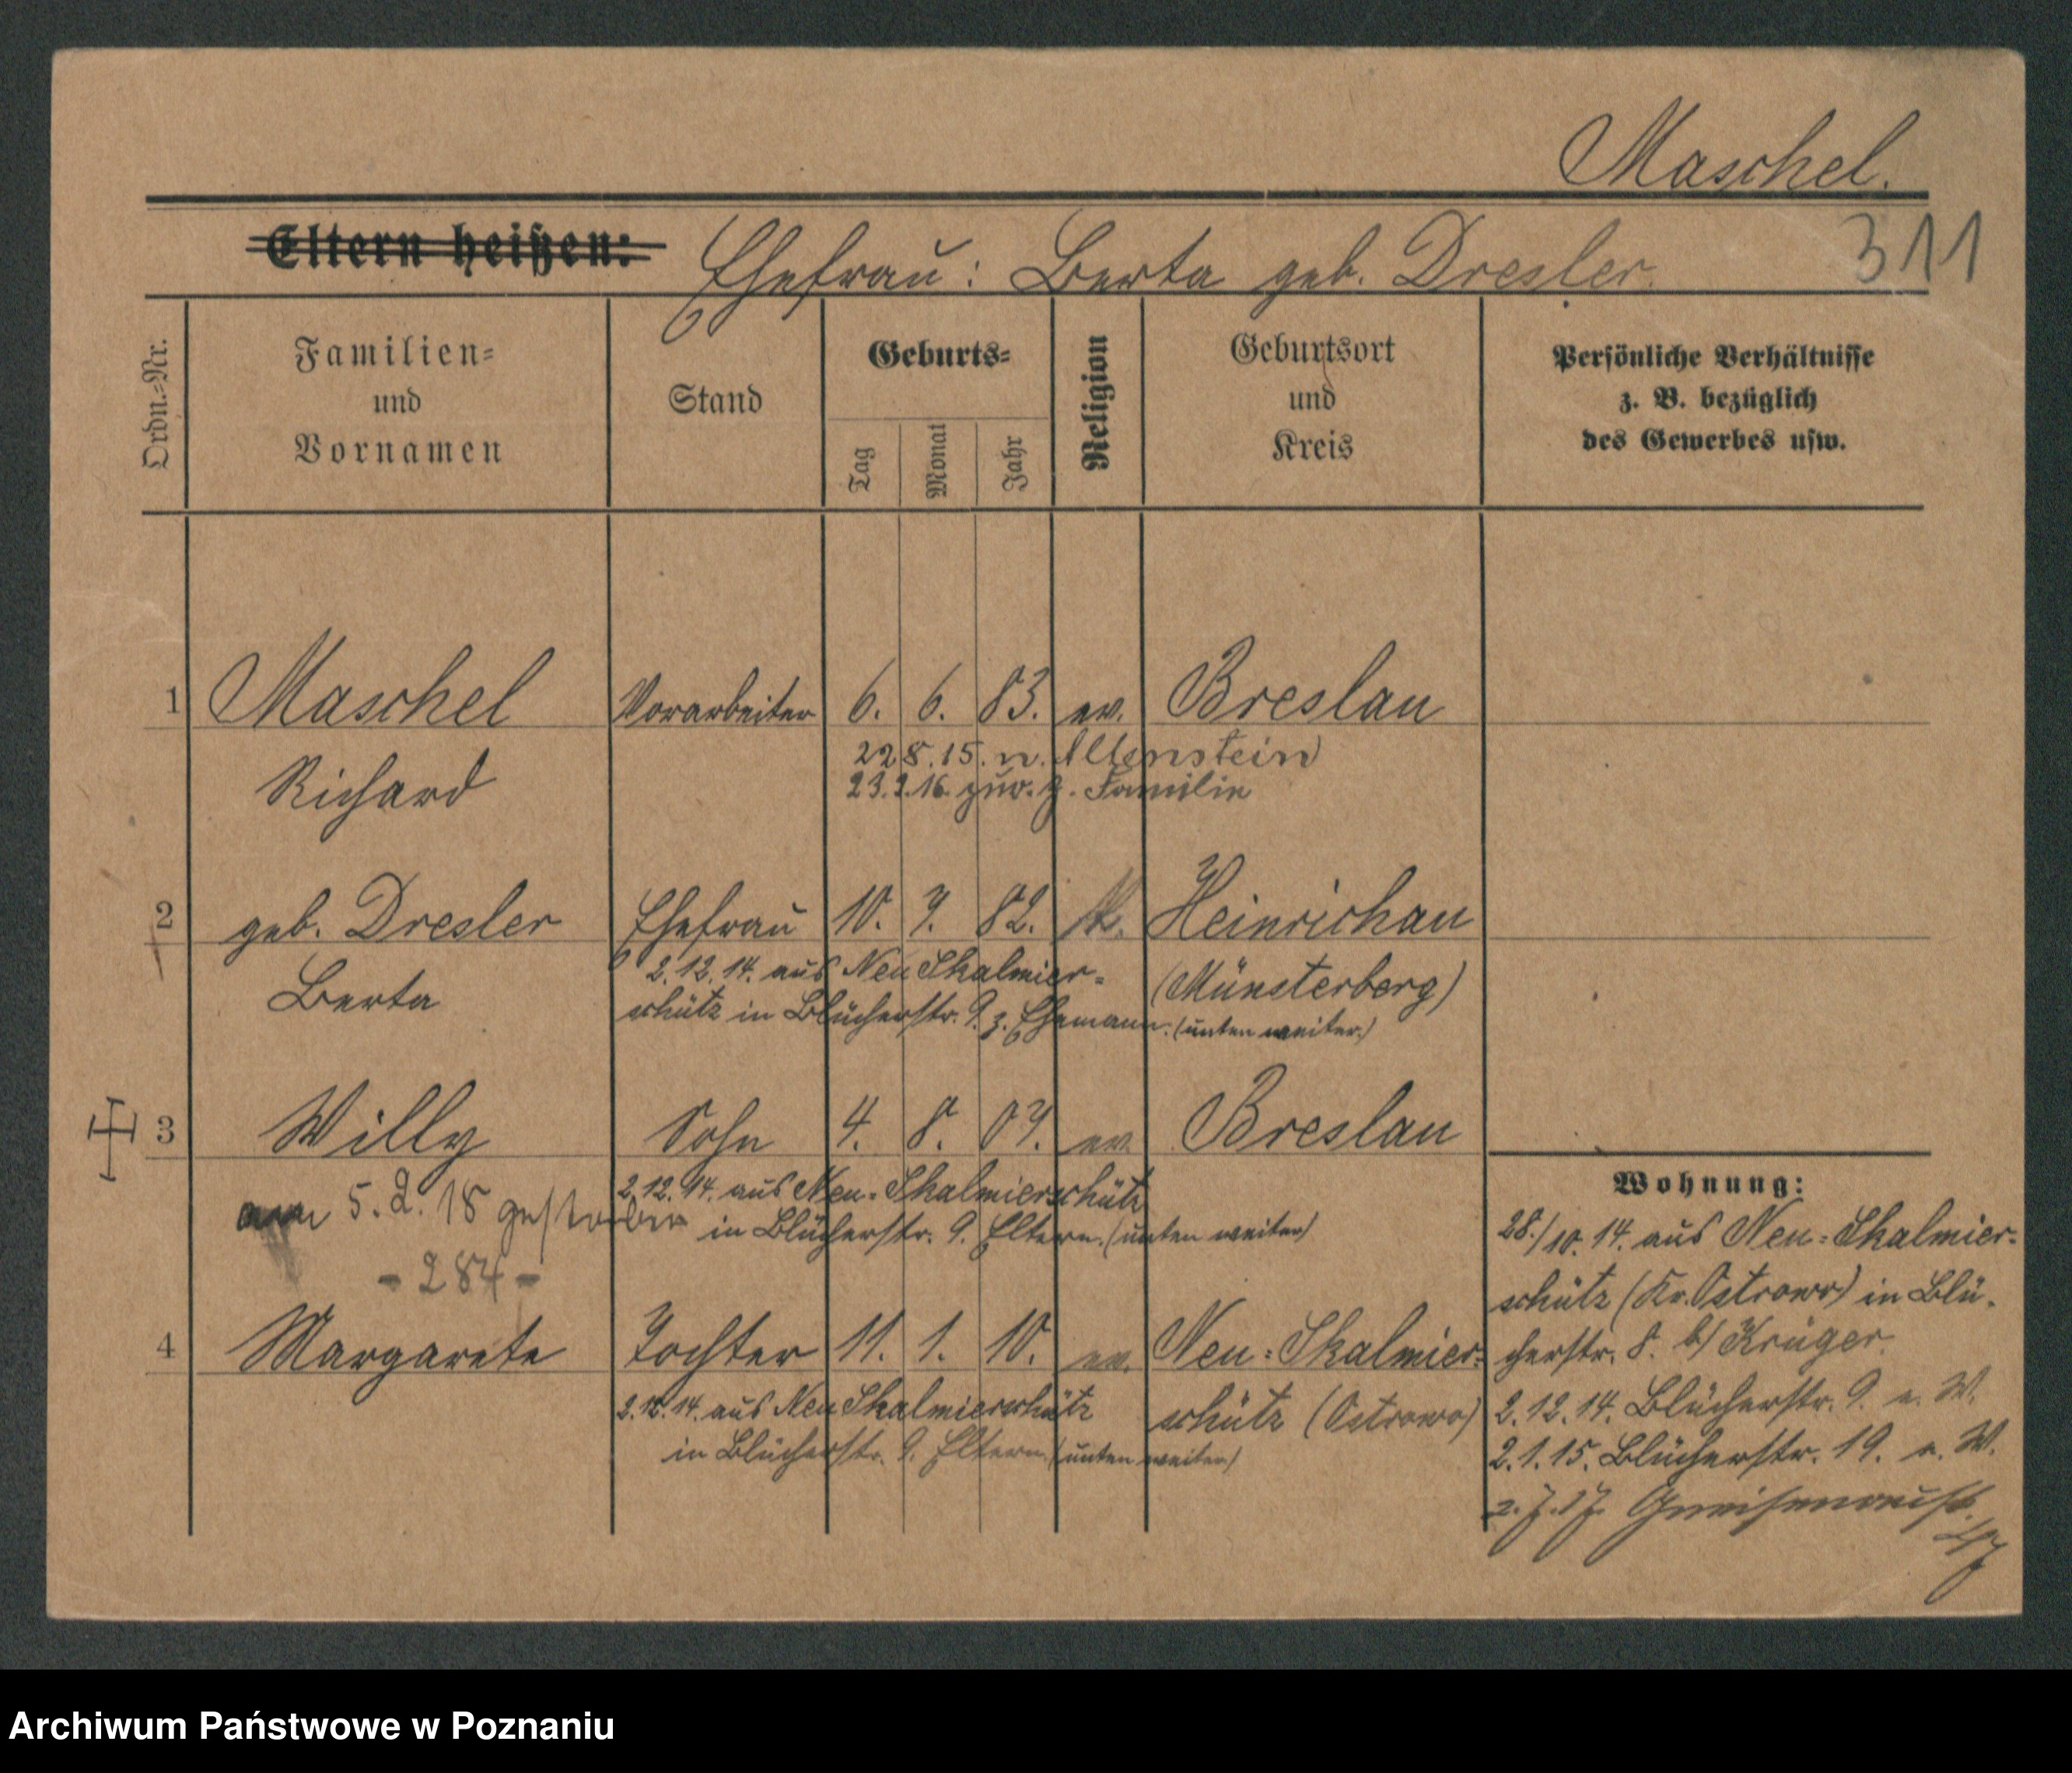 Maschel.
Eltern heißen: Ehefrau: Berta geb. Dresler. 311
Ordn.=Nr.
Familien=
und
Vornamen
Stand
Geburts=
Tag
Monat
Jahr
Religion
Geburtsort
und
Kreis
Persönliche Verhältnisse
z. B. bezüglich
des Gewerbes usw.
1 Maschel Vorarbeiter 6. 6. 83. ev. Breslau
22.8.15. n. Allenstein
Richard 23.2.16. zur. z. Familie
2 geb. Dresler Ehefrau 10. 7. 82. k. Heinrichau
Berta 2.12.14. aus Neu Skalmier= (Münsterberg)
schütz in Blücherstr. 9. z. Ehemann. (unten weiter.)
3 Willy Sohn 4. 8. 07. ev. Breslau
2.12.14. aus Neu=Skalmierschütz
am 5.2.18 gestorben in Blücherstr. 9. Eltern. (unten weiter)
- 284 -
4 Margarete Tochter 11. 1. 10. ev. Neu=Skalmier=
2.12.14. aus Neu Skalmierschütz schütz (Ostrowo)
in Blücherstr. 9. Eltern. (unten weiter)
Wohnung:
28./10.14. aus Neu=Skalmier=
schütz (Kr. Ostrowo) in Blü-
cherstr. 8. b/ Krüger.
2.12.14. Blücherstr. 9. e. W.
2.1.15. Blücherstr. 19. e. W.
2.7.17. Gneisenaustr.
47
Archiwum Państwowe w Poznaniu